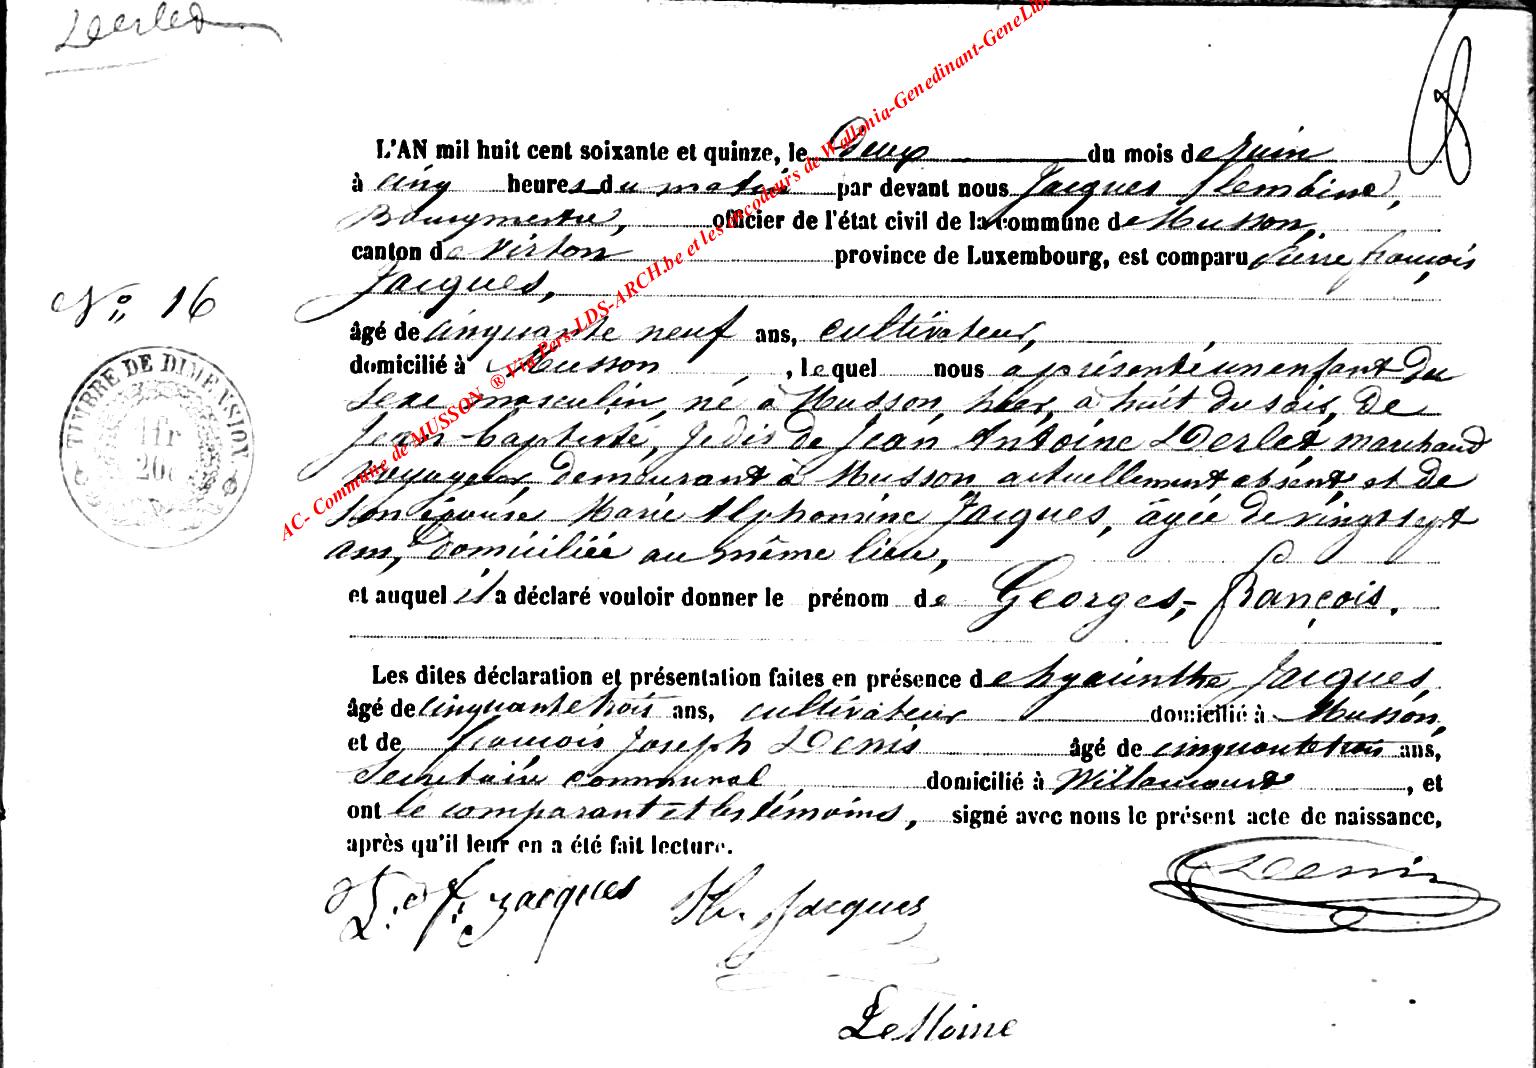 Derlet
8
L'AN mil huit cent soixante et quinze, le Deux du mois de Juin
à cinq heures du matin par devant nous Jacques
Bourgmestre, officier de l'état civil de la commune de Musson,
canton de Virton province de Luxembourg, est comparu Pierre françois
Jacques,
N° 16
âgé de cinquante neuf ans, cultivateur,
domicilié à Musson, lequel nous a présenté un enfant du
sexe masculin, né à Musson, hier, à huit du soir, de
Jean-baptiste, Je dis de Jean Antoine Derlet marchand
voyageur, demeurant à Musson actuellement absent et de
son épouse Marie Alphonsine Jacques, âgée de vingt sept
ans, domiciliée au même lieu,
et auquel il a déclaré vouloir donner le prénom de Georges, françois.
Les dites déclaration et présentation faites en présence de hyacinthe Jacques,
âgé de cinquante trois ans, cultivateur domicilié à Musson,
et de françois Joseph Denis âgé de cinquante trois ans,
Secrétaire communal domicilié à Willancourt, et
ont le comparant et les témoins, signé avec nous le présent acte de naissance,
après qu'il leur en a été fait lecture.
P. f. Jacques H. Jacques Denis
LeMoine
TIMBRE DE DIMENSION
1 fr
20c
AC- Commune de MUSSON ® Via Pers-LDS-ARCH.be et les encodeurs de Wallonia-Genedinant-GeneLib